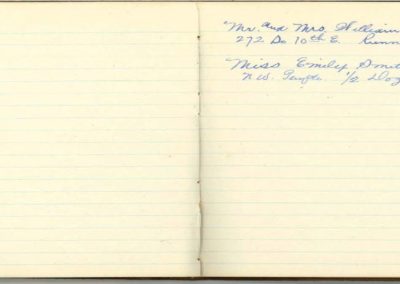 "Mr. and Mrs. William
272 So 10th E. Runn
Miss Emily Smit
N.W. Temple. 1/2 Doz